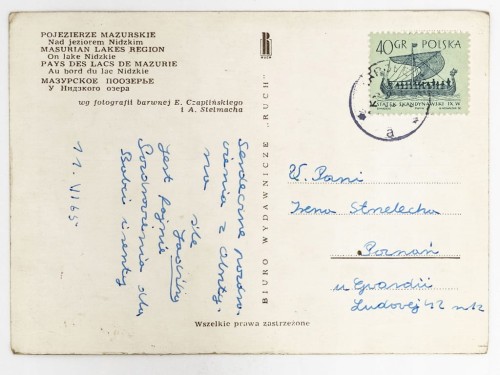 POJEZIERZE MAZURSKIE
Nad jeziorem Nidzkim
MASURIAN LAKES REGION
On lake Nidzkie
PAYS DES LACS DE MAZURIE
Au bord du lac Nidzkie
МАЗУРСКОЕ ПООЗЕРЬЕ
У Нидзкого озера
wg fotografii barwnej E. Czaplińskiego
i A. Stelmacha
RUCH
BIURO WYDAWNICZE „RUCH"
40 GR POLSKA
STATEK SKANDYNAWSKI IX W.
a
Serdeczne pozdro-
wienia z
śle
Jest fajnie
Pozdrowienia dla
Babci i
11. VI 65
W. Pani
Irena Strelecka
Poznań
u Gwardii
Ludowej 42 m
Wszelkie prawa zastrzeżone